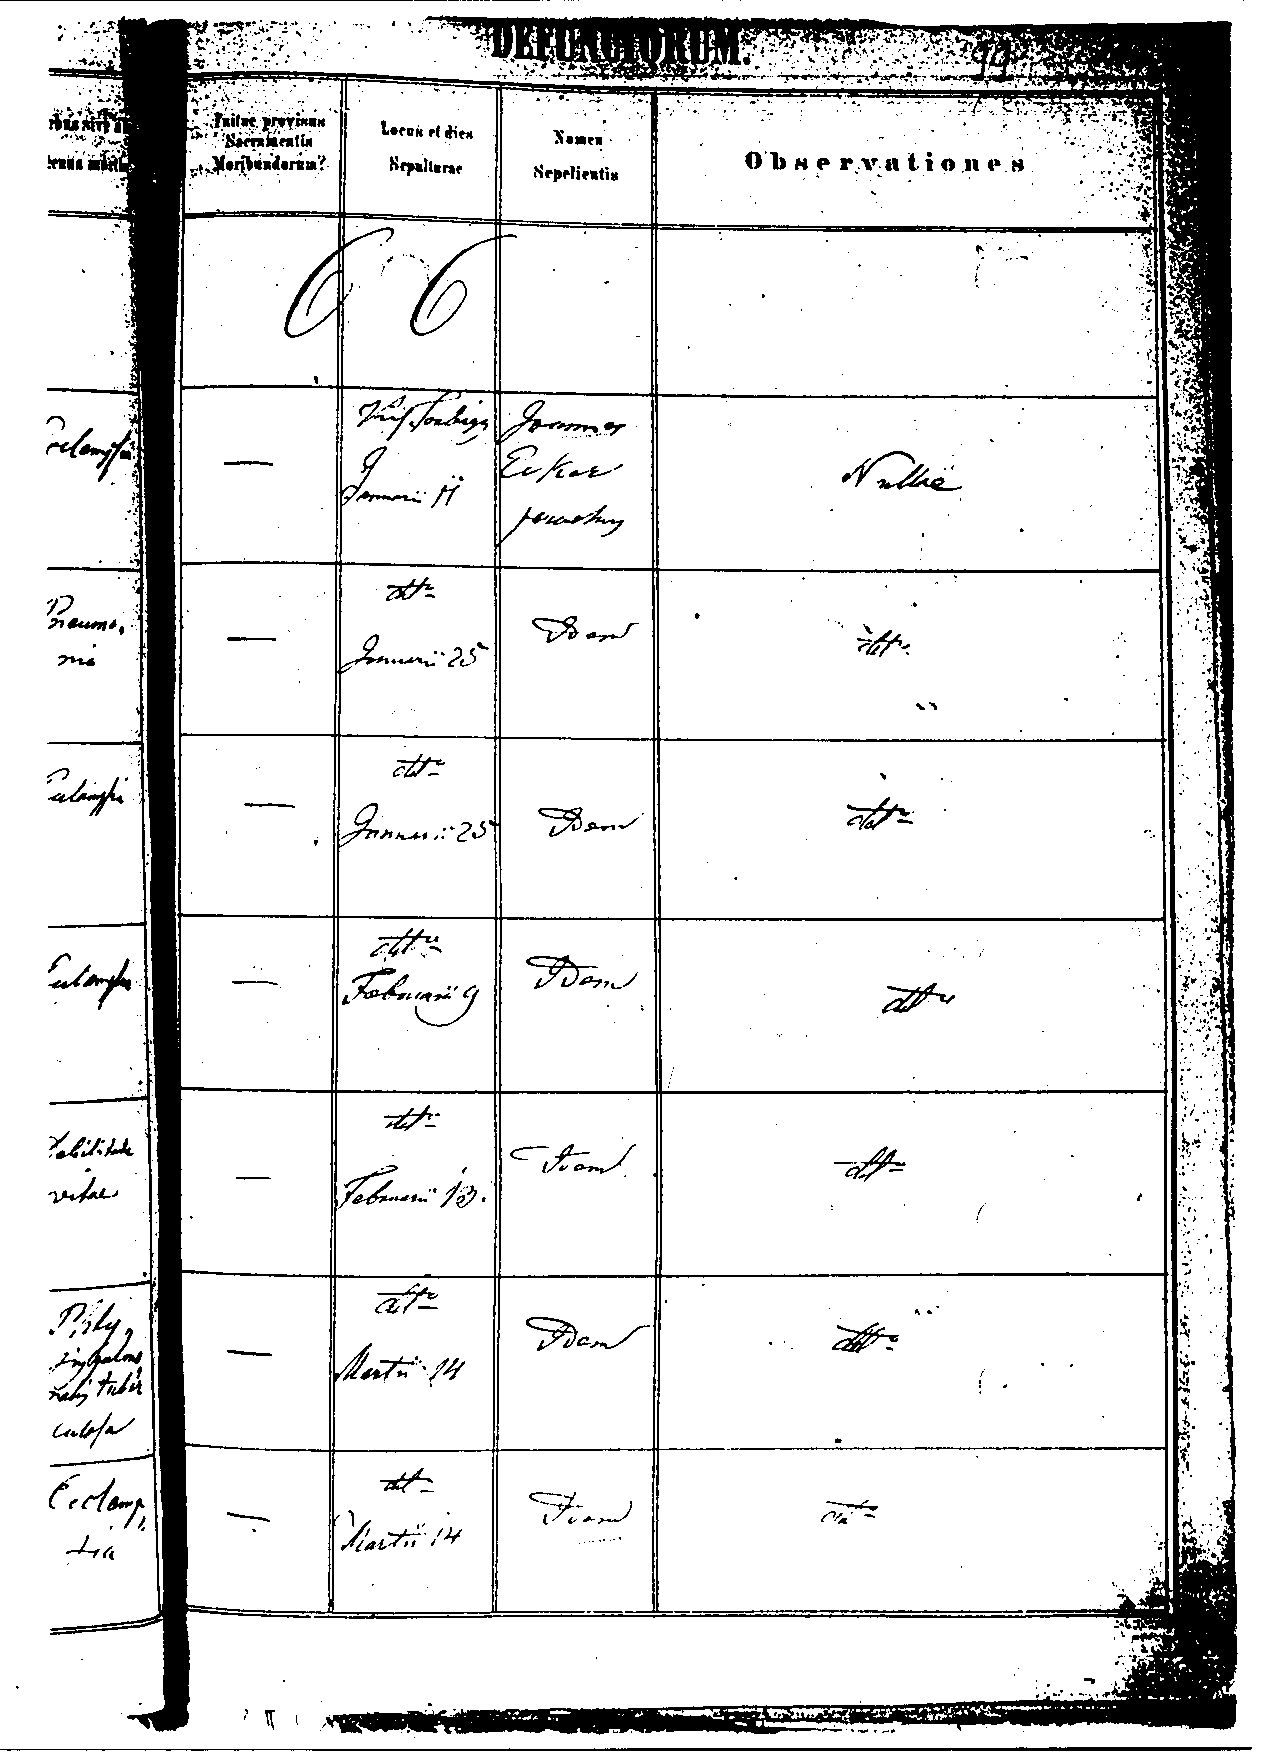 DEFUNCTORUM.
94
Fuitne provisus
Sacramentis
Moribundorum?
Locus et dies
Sepulturae
Nomen
Sepelientis
Observationes
66
Eclampsia
—
Januarii 11
Joannes
parochus
Nullae
Pneumo,
nia
—
dtto
Januarii 25
Idem
dtto
Eclampsia
—
dtto
Januarii 25
Idem
dtto
Eclampsia
—
dtto
Februarii 9
Idem
dtto
Debilitate
vitae
—
dtto
Februarii 13.
Idem
dtto
tuber
culosa
—
dtto
Martii 14
Idem
dtto
Eclamp,
sia
—
dtto
Martii 14
Idem
dtto